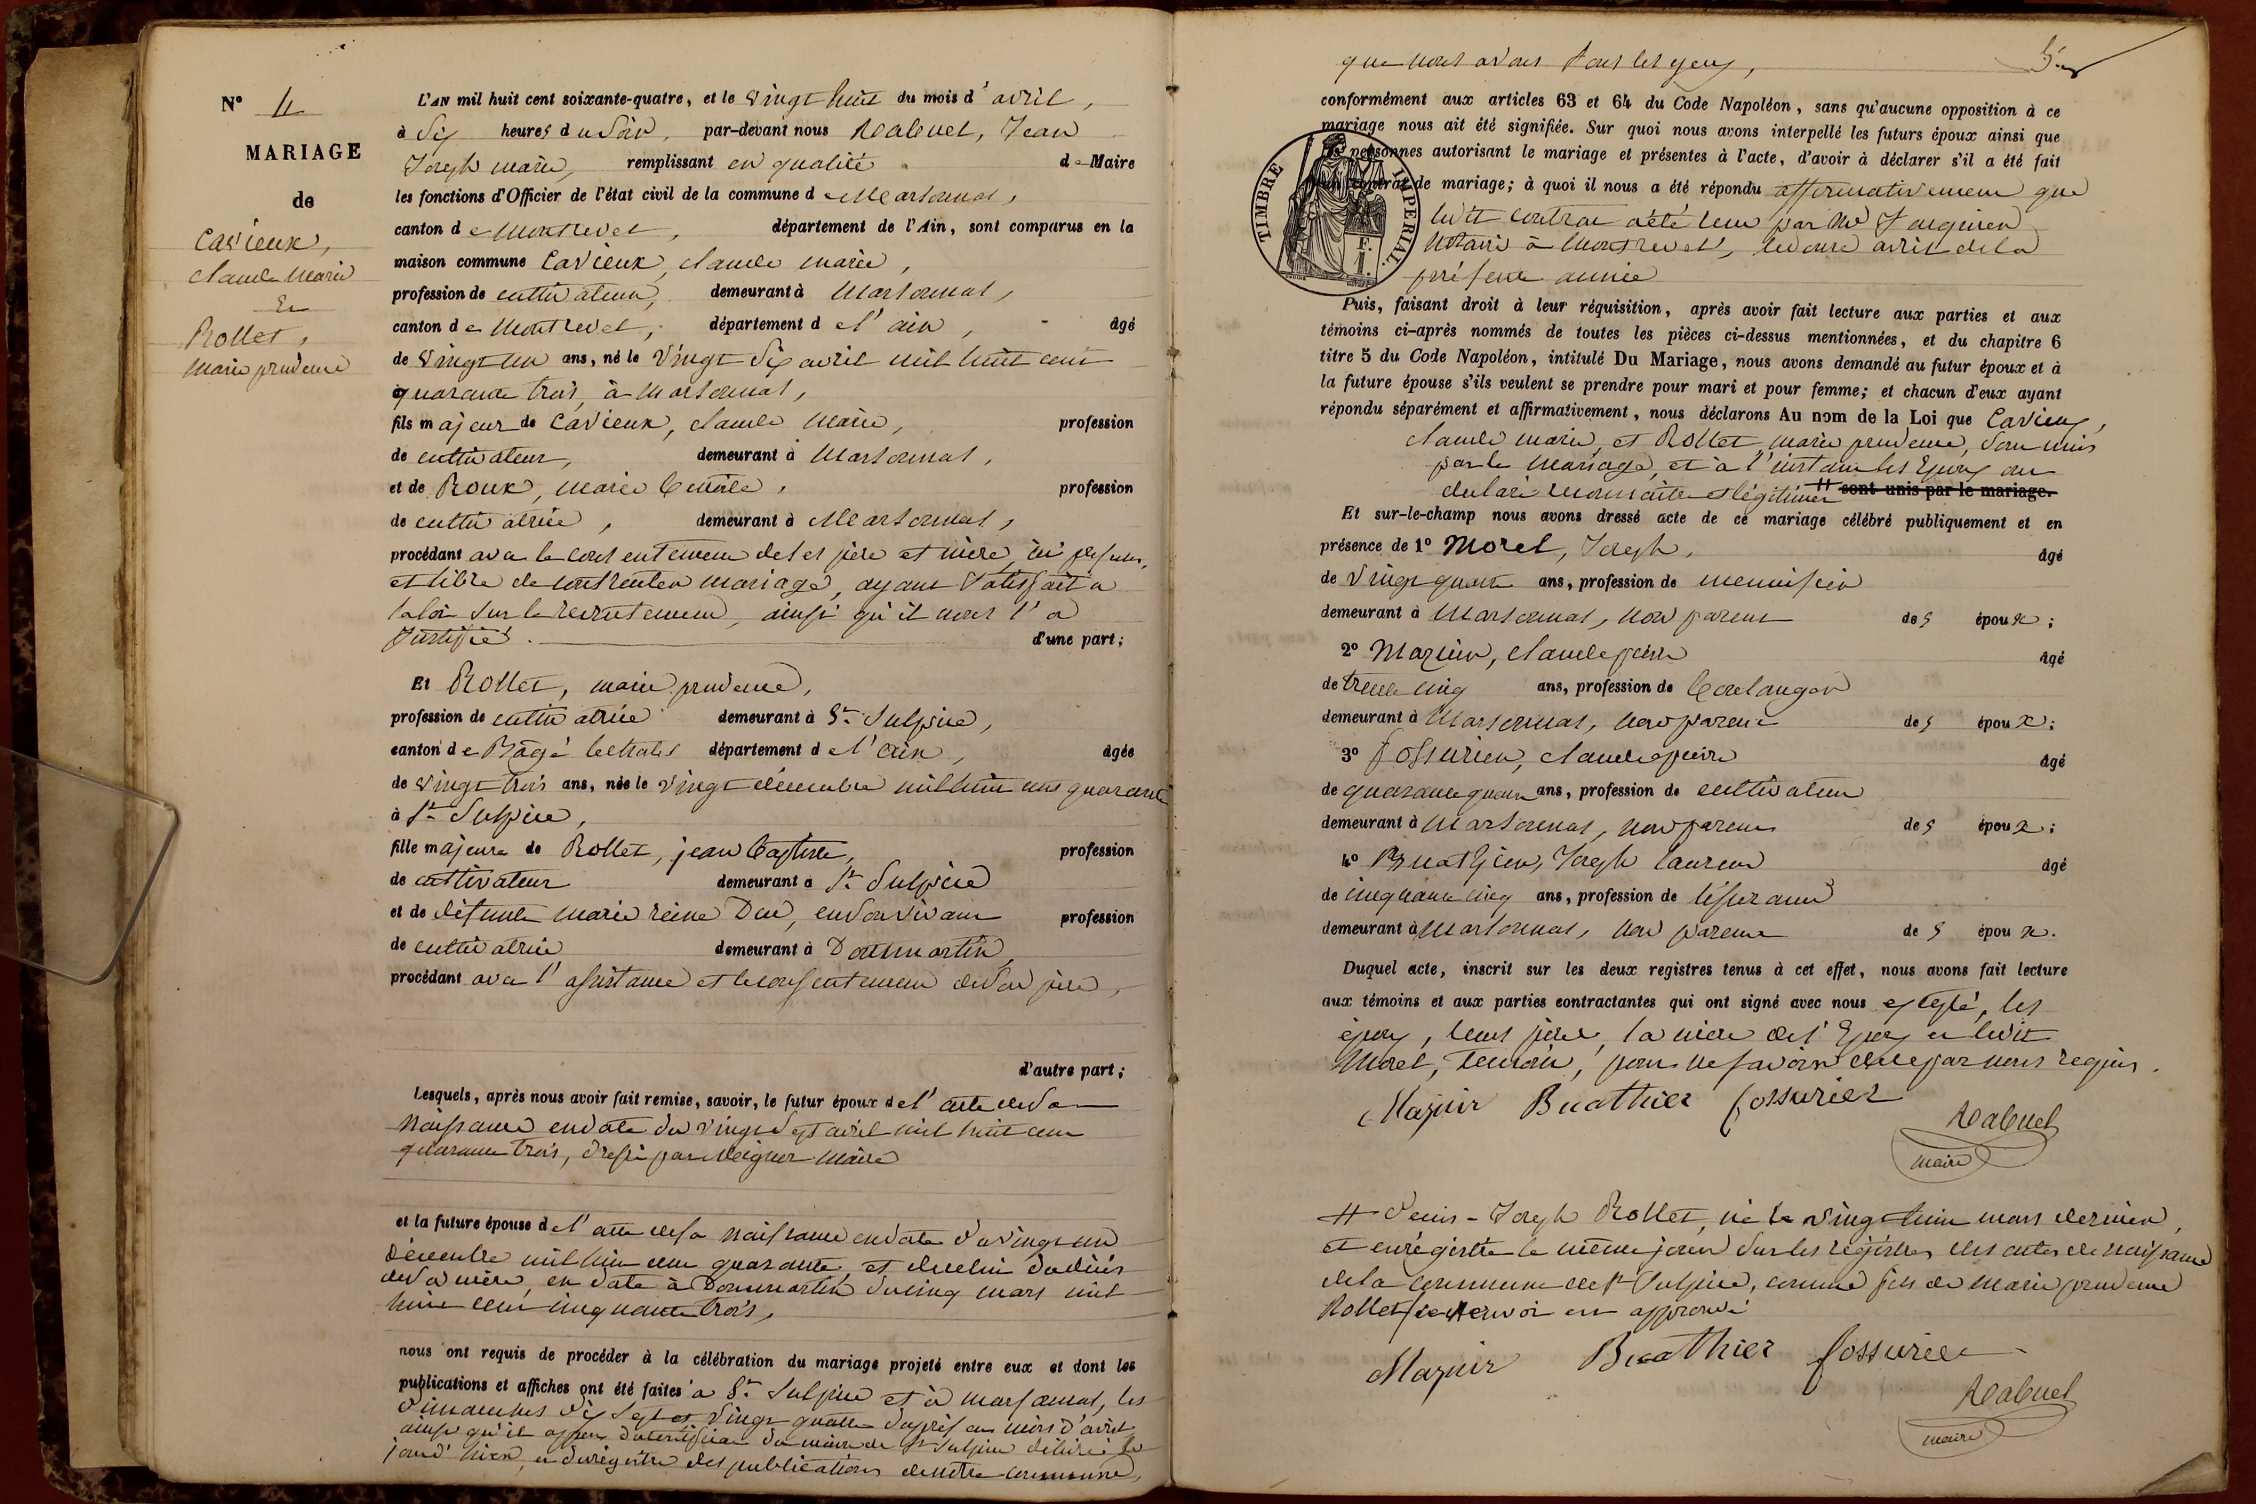 N° 4
MARIAGE
de
Cavieux,
claude marie
Et
Rollet,
marie prudence
L'AN mil huit cent soixante-quatre, et le vingt huit du mois d'avril,
à six heures du soir, par-devant nous Rabuel, Jean
Joseph marie, remplissant en qualité de Maire
les fonctions d'Officier de l'état civil de la commune de Marsonnas,
canton de Montrevel, département de l'Ain, sont comparus en la
maison commune Cavieux, claude marie,
profession de cultivateur, demeurant à Marsonnas,
canton de Montrevel, département de l'ain, âgé
de vingt un ans, né le vingt six avril mil huit cent
quarante trois, à Marsonnas,
fils majeur de Cavieux, claude marie, profession
de cultivateur, demeurant à Marsonnas,
et de Roux, marie profession
de cultivatrice, demeurant à Marsonnas,
procédant avec le consentement de ses père et mère, ici présents,
et libre de contracter mariage, ayant satisfait à
la loi sur le recrutement, ainsi qu'il nous l'a
justifié. d'une part;
Et Rollet, marie prudence,
profession de cultivatrice demeurant à St Sulpice,
canton de Bâgé le chatel département de l'ain, âgée
de vingt trois ans, née le vingt décembre mil huit cent quarante
à St Sulpice,
fille majeure de Rollet, jean Baptiste, profession
de cultivateur demeurant à St Sulpice
et de défunte marie reine en son vivant profession
de cultivatrice demeurant à Dommartin,
procédant avec l'assistance et le consentement de son père,
d'autre part;
Lesquels, après nous avoir fait remise, savoir, le futur époux de l'acte de sa
naissance en date du vingt sept avril mil huit cent
quarante trois, dressé par maire
et la future épouse de l'acte de sa naissance en date du vingt un
décembre mil huit cent quarante et de celui du décès
de sa mère, en date à Dommartin du cinq mars mil
huit cent cinquante trois,
nous ont requis de procéder à la célébration du mariage projeté entre eux et dont les
publications et affiches ont été faites à St Sulpice et à marsonnas, les
dimanches dix sept et vingt quatre du présent mois d'avril
ainsi qu'il appert du certificat du maire de St Sulpice délivré le
jour d'hier, et du registre des publications de notre commune,
que nous avons sous les yeux,
conformément aux articles 63 et 64 du Code Napoléon, sans qu'aucune opposition à ce
mariage nous ait été signifiée. Sur quoi nous avons interpellé les futurs époux ainsi que
les personnes autorisant le mariage et présentes à l'acte, d'avoir à déclarer s'il a été fait
un contrat de mariage; à quoi il nous a été répondu affirmativement que
ledit contrat a été reçu par Me
Notaire à Montrevel, le onze avril de la
présente année
TIMBRE IMPERIAL.
Puis, faisant droit à leur réquisition, après avoir fait lecture aux parties et aux
témoins ci-après nommés de toutes les pièces ci-dessus mentionnées, et du chapitre 6
titre 5 du Code Napoléon, intitulé Du Mariage, nous avons demandé au futur époux et à
la future épouse s'ils veulent se prendre pour mari et pour femme; et chacun d'eux ayant
répondu séparément et affirmativement, nous déclarons Au nom de la Loi que Cavieux,
claude marie, et Rollet, marie prudence, sont unis
par le mariage, et à l'instant les Epoux ont
déclaré reconnaître et légitimer # sont unis par le mariage.
Et sur-le-champ nous avons dressé acte de ce mariage célébré publiquement et en
présence de 1° Morel, Joseph, âgé
de vingt quatre ans, profession de menuisier
demeurant à Marsonnas, non parent des époux;
2° Mazuir, claude pierre âgé
de trente cinq ans, profession de Boulanger
demeurant à Marsonnas, non parent des époux;
3° Fossurier, claude pierre âgé
de quarante quatre ans, profession de cultivateur
demeurant à Marsonnas, non parent des époux;
4° Buathier, Joseph Laurent âgé
de cinquante cinq ans, profession de tisserand
demeurant à Marsonnas, non parent des époux.
Duquel acte, inscrit sur les deux registres tenus à cet effet, nous avons fait lecture
aux témoins et aux parties contractantes qui ont signé avec nous excepté, les
époux, leurs père, la mère de l'Epoux et ledit
Morel, témoin, pour ne savoir de ce par nous requis.
Mazuir Buathier fossurier
Rabuel
maire
# Denis-Joseph Rollet, né le vingt huit mars dernier,
et enrégistré le même jour sur les régistres des actes de naissance
de la commune de St Sulpice, comme fils de marie prudence
Rollet, ce renvoi est approuvé
Mazuir Buathier fossurier
Rabuel
maire